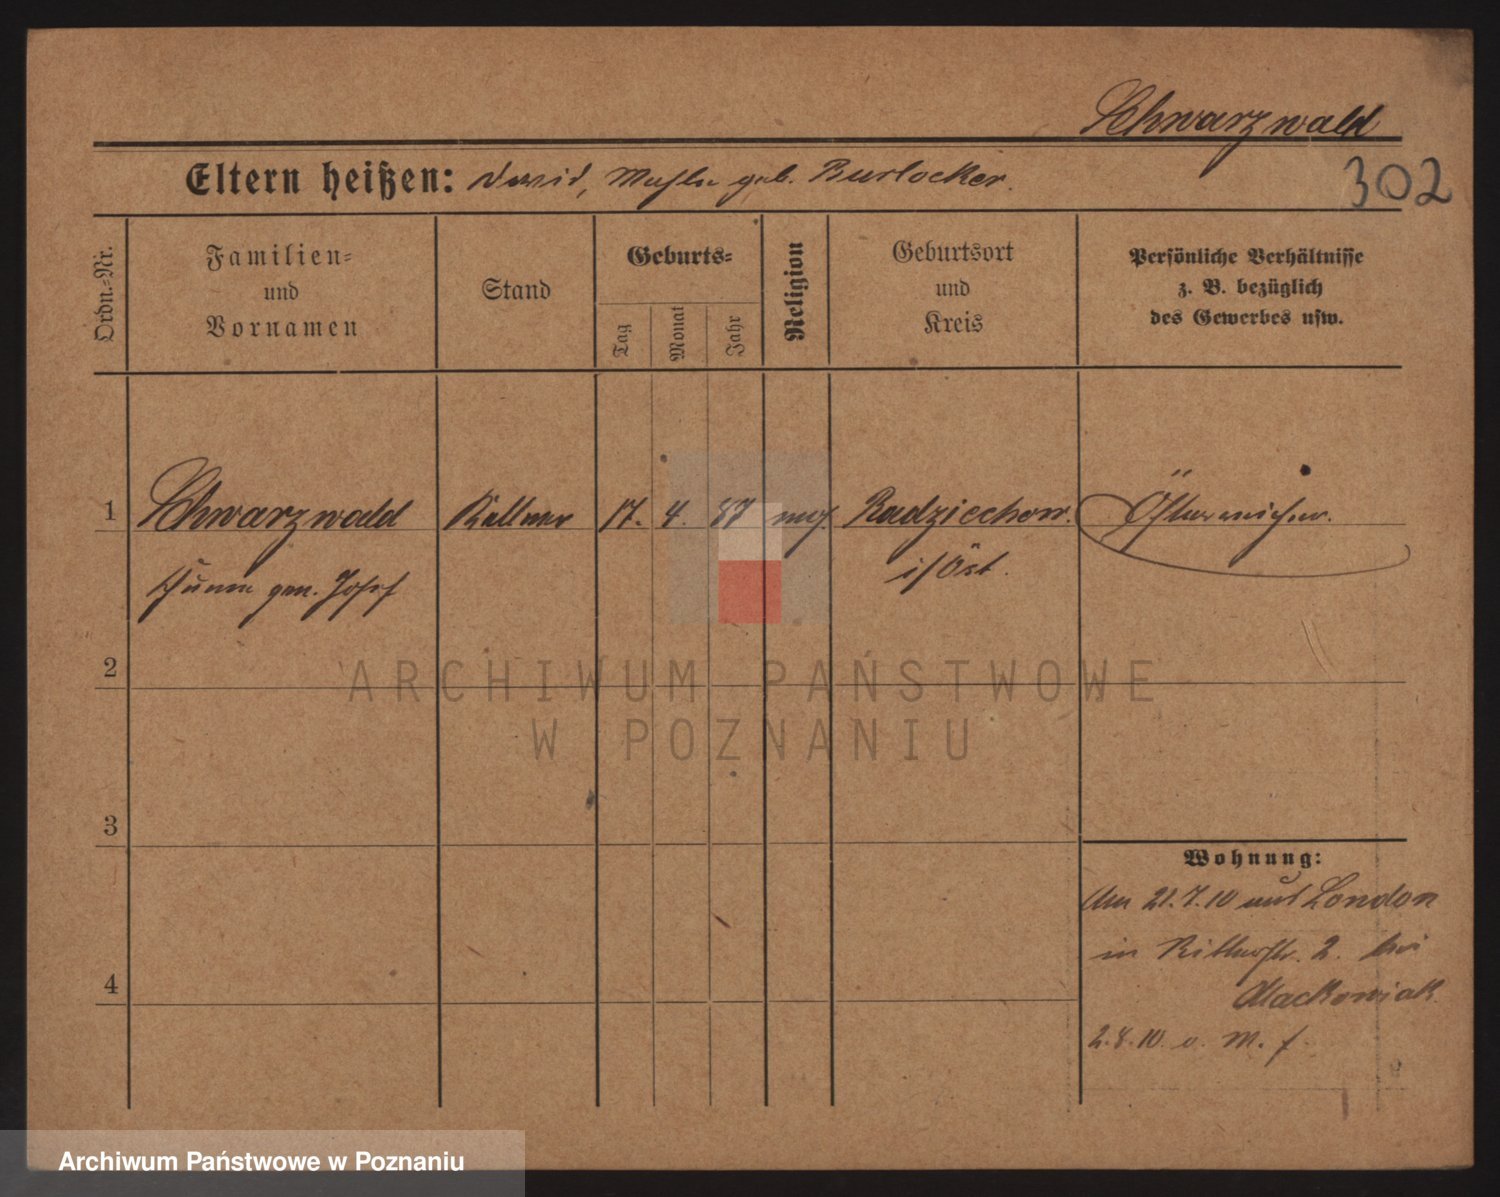 Schwarzwald
302
Eltern heißen: David, geb. Burlocker.
Ordn.-Nr.
Familien-
und
Vornamen
Stand
Geburts-
Tag
Monat
Jahr
Religion
Geburtsort
und
Kreis
Persönliche Verhältnisse
z. B. bezüglich
des Gewerbes usw.
1 Schwarzwald Kellner 17. 4. 87 mos Radziechow. Österreicher.
gen. Josef i/Öst.
2
3
4
Wohnung:
Am 21.7.10 aus London
in Ritterstr. 2. bei
Mackowiak
2.8.10 o. M. f
ARCHIWUM PAŃSTWOWE
W POZNANIU
Archiwum Państwowe w Poznaniu